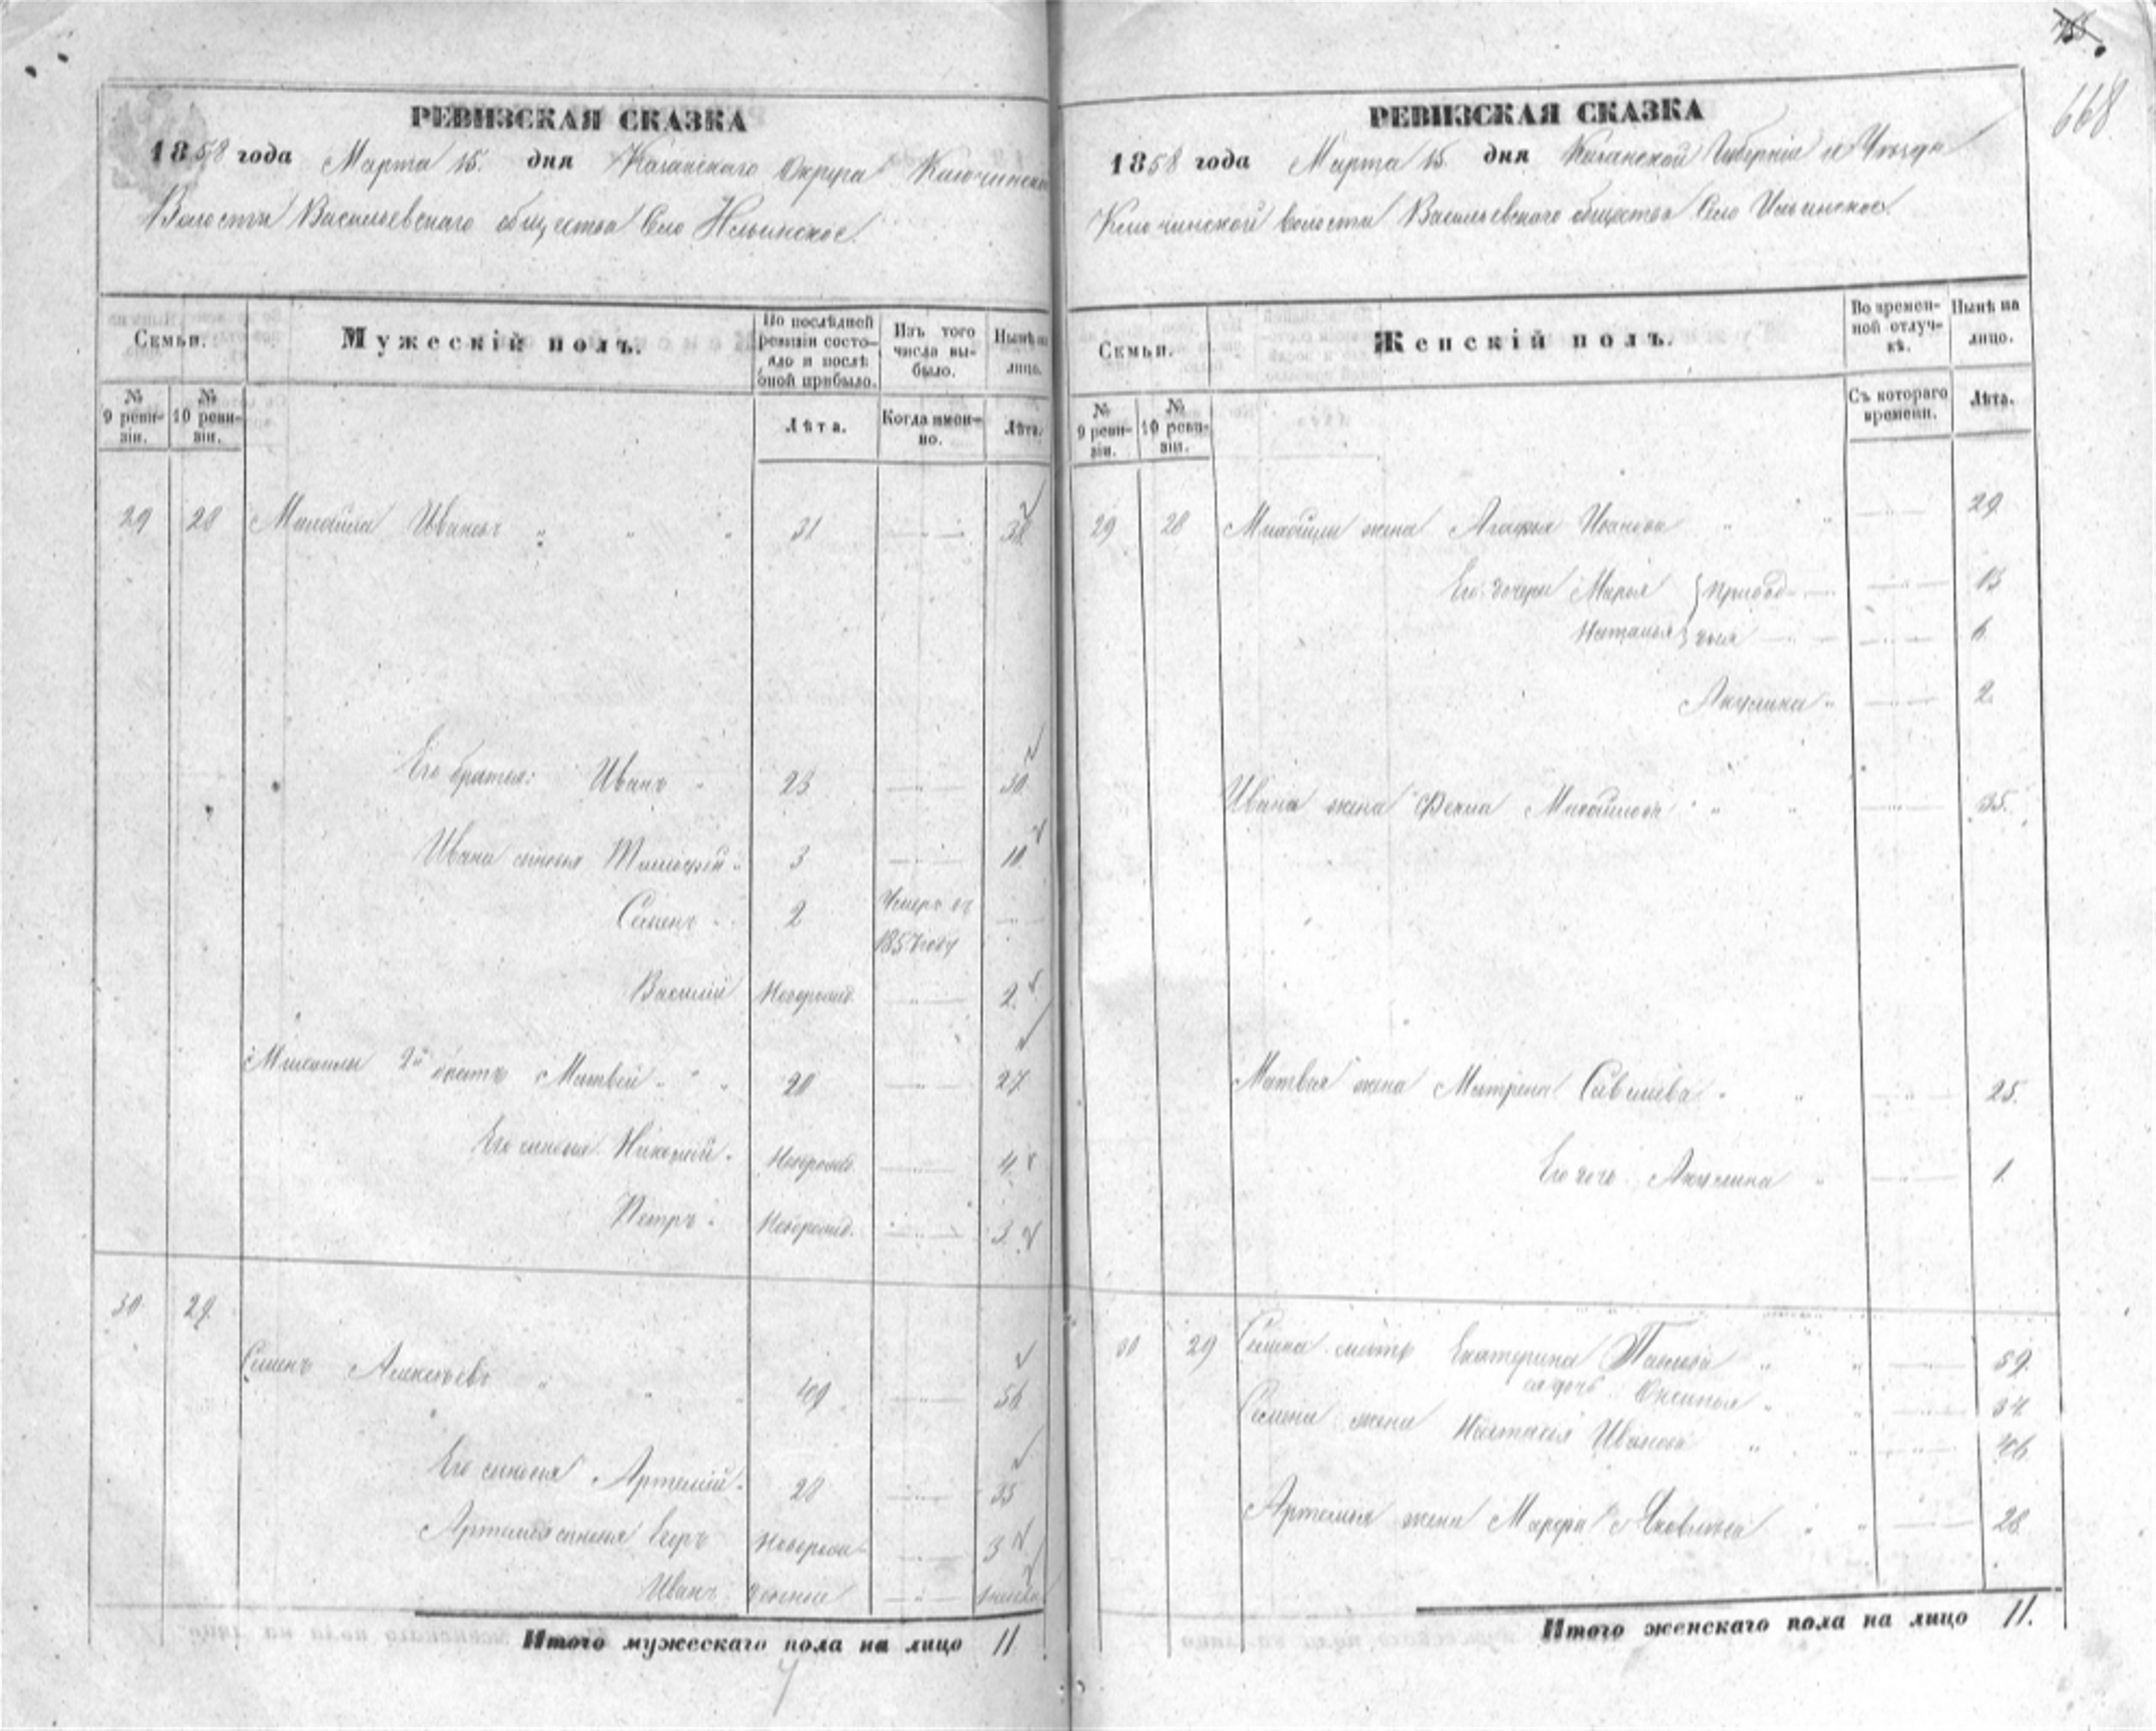 668.
РЕВИЗСКАЯ СКАЗКА
1858 года Марта 15. дня Казанского Округа
Волости Васильевскаго общества Село Ильинское.
Семьи.
Мужескій полъ.
По послѣдней ревизіи состояло и послѣ оной прибыло.
Изъ того числа выбыло.
Нынѣ на лицо.
№ 9 ревизіи.
№ 10 ревизіи.
Лѣта.
Когда именно.
Лѣта.
29 28 Иванов 31 38
Его братья: Иванъ 23 30
Ивана сыновья Тимофей 3 10
Семенъ 2 Умеръ въ 1857 году
Василій Новорожд. 2
2й братъ Матвей 20 27
Его сыновья Новорожд. 4
Петръ Новорожд. 3
30 29
Семенъ Алексѣевъ 49 56
Его сыновья Артемій 28 35
Артемья сыновья Егоръ Новорож- 3
Иванъ денные
Итого мужескаго пола на лицо 11
РЕВИЗСКАЯ СКАЗКА
1858 года Марта 15. дня Казанской Губерніи и Уѣзда
Ключинской волости Васильевскаго общества Село Ильинское.
Семьи.
Женскій полъ.
Во временной отлучкѣ.
Нынѣ на лицо.
№ 9 ревизіи.
№ 10 ревизіи.
Съ котораго времени.
Лѣта.
29 28 жена Агафья Иванова 29
Его дочери Марья 13
Наталья 6
Акулина 2.
Ивана жена Фекла 35.
Матвея жена Матрена Савельева 25.
Его дочь Акулина 1
30 29 Семена Екатерина Павлова 59.
ея дочь Оксинья 34
Семена жена Настасья Иванова 46
Артемья жена Марфа Яковлева 28
Итого женскаго пола на лицо 11.